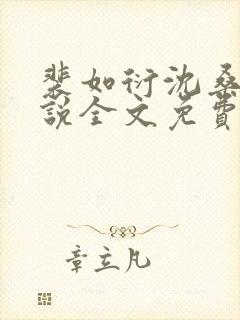 裴如衍沈桑
说全文免费
章立凡